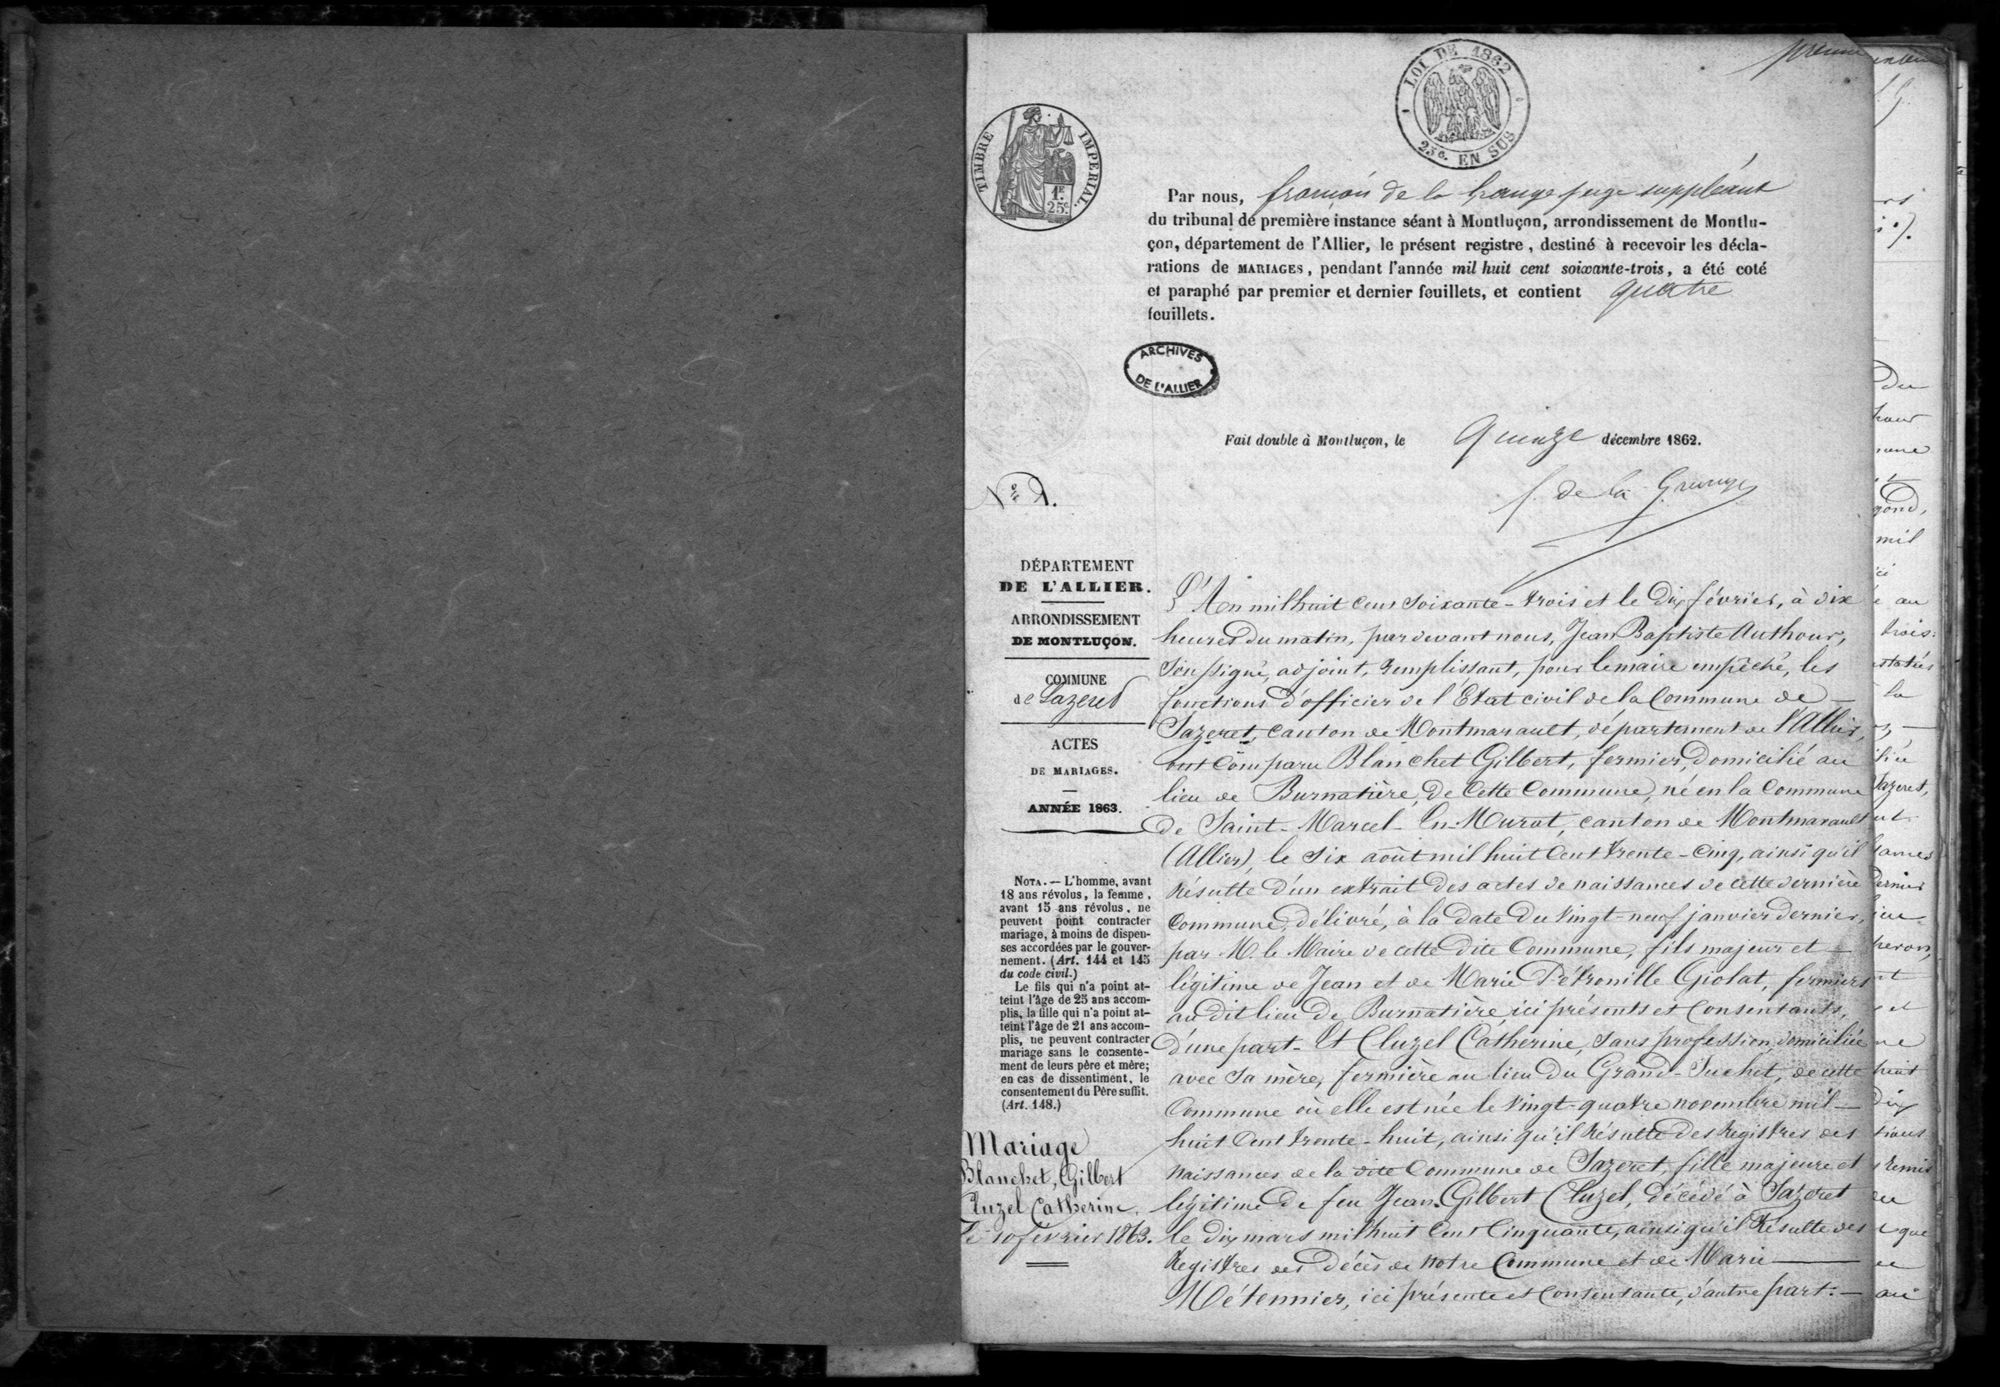 premier
LOI DE 1862
25c. EN SUS
TIMBRE IMPERIAL.
1F.
25c.
Par nous, de la Grange juge suppléant
du tribunal de première instance séant à Montluçon, arrondissement de Montlu-
çon, département de l'Allier, le présent registre, destiné à recevoir les décla-
rations de MARIAGES, pendant l'année mil huit cent soixante-trois, a été coté
et paraphé par premier et dernier feuillets, et contient quatre
feuillets.
ARCHIVES
DE L'ALLIER
Fait double à Montluçon, le quinze décembre 1862.
f. de la Grange
N° 1.
DÉPARTEMENT
DE L'ALLIER.
ARRONDISSEMENT
DE MONTLUÇON.
COMMUNE
de Sazeret
ACTES
DE MARIAGES.
ANNÉE 1863.
NOTA. — L'homme, avant
18 ans révolus, la femme,
avant 15 ans révolus, ne
peuvent point contracter
mariage, à moins de dispen-
ses accordées par le gouver-
nement. (Art. 144 et 145
du code civil.)
Le fils qui n'a point at-
teint l'âge de 25 ans accom-
plis, la fille qui n'a point at-
teint l'âge de 21 ans accom-
plis, ne peuvent contracter
mariage sans le consente-
ment de leurs père et mère;
en cas de dissentiment, le
consentement du Père suffit.
(Art. 148.)
Mariage
Blanchet, Gilbert
Cluzel Catherine,
le 10 février 1863.
L'An mil huit cent soixante-trois et le dix février, à dix
heures du matin, par devant nous, Jean Baptiste Authour,
soussigné, adjoint, remplissant, pour le maire empêché, les
fonctions d'officier de l'Etat civil de la Commune de
Sazeret, canton de Montmarault, département de l'Allier,
ont comparu Blanchet Gilbert, fermier, domicilié au
lieu de Burnatière, de cette Commune, né en la Commune
de Saint-Marcel-en-Murat, canton de Montmarault
(Allier), le six août mil huit cent trente-cinq, ainsi qu'il
résulte d'un extrait des actes de naissances de cette dernière
Commune, délivré, à la date du vingt-neuf janvier dernier,
par M. le Maire de cette dite Commune, fils majeur et
légitime de Jean et de Marie Pétronille Giolat, fermiers
au dit lieu de Burnatière, ici présents et consentants,
d'une part - Et Cluzel Catherine, sans profession, domiciliée
avec sa mère, fermière au lieu du Grand-Suchet, de cette
Commune où elle est née le vingt-quatre novembre mil
huit cent trente-huit, ainsi qu'il résulte des registres des
naissances de la dite Commune de Sazeret, fille majeure et
légitime de feu Jean-Gilbert Cluzel, décédé à Sazeret
le dix mars mil huit cent cinquante, ainsi qu'il résulte des
registres des décès de notre Commune et de Marie
Métennier, ici présente et consentante, d'autre part. —